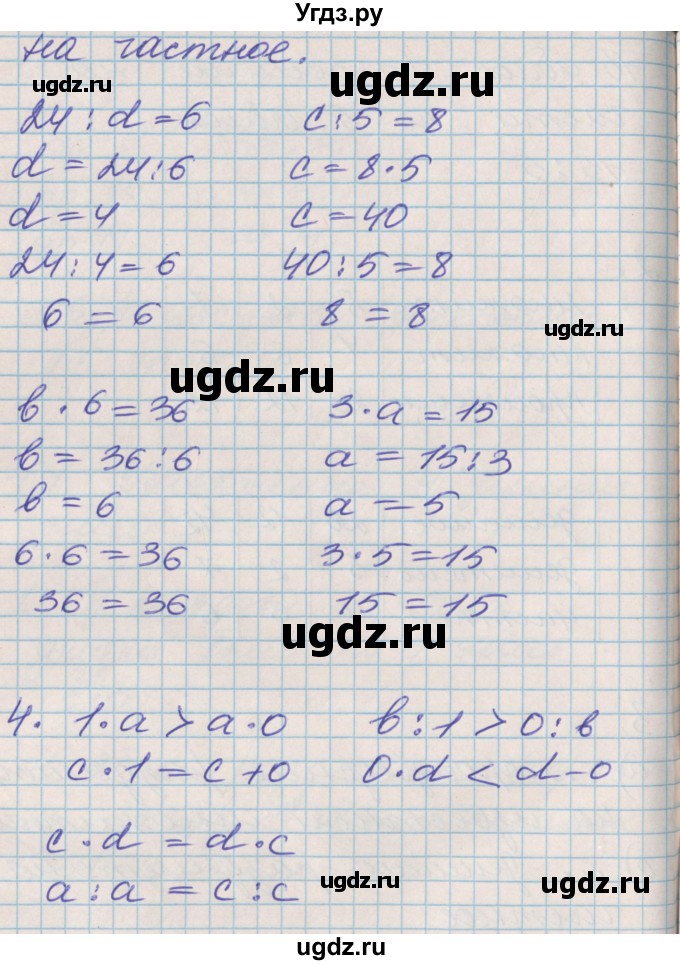 Угдз.ру
на частное.
ugdz.ru
ugdz.ru
24 : d = 6    c : 5 = 8
d = 24 : 6    c = 8 · 5
d = 4    c = 40
24 : 4 = 6    40 : 5 = 8
6 = 6    8 = 8
ugdz.ru
ugdz.ru
в · 6 = 36    3 · a = 15
в = 36 : 6    a = 15 : 3
в = 6    a = 5
6 · 6 = 36    3 · 5 = 15
36 = 36    15 = 15
ugdz.ru
4. 1 · a > a · 0    в : 1 > 0 : в
c · 1 = c + 0    0 · d < d - 0
c · d = d · c
a : a = c : c
ugdz.ru
ugdz.ru
ugdz.ru